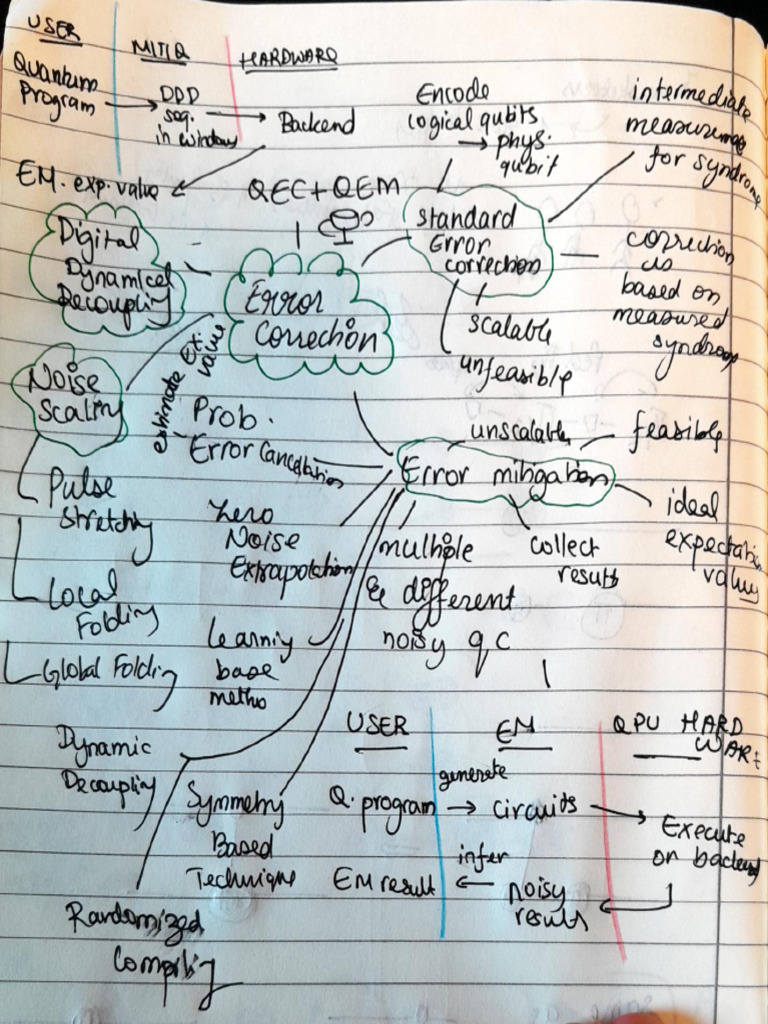 USER
MITIQ
HARDWARE
Quantum
Program → DDD
seq.
in window → Backend
EM. exp. value
Encode
logical qubits
→ phys.
qubit
intermediate
measureme
for syndrome
QEC + QEM
Standard
Error
correction
correction
is
based on
measured
syndrome
scalable
unfeasible
Digital
Dynamical
Decoupling
Error
Correction
Noise
Scaling
estimate Ex.
value
Prob.
Error Cancellation
unscalable
feasible
Error mitigation
ideal
expectation
value
Pulse
Stretching
Zero
Noise
Extrapolation
multiple
& different
noisy qc
collect
results
Local
Folding
Global Folding
Learning
base
metho
Dynamic
Decoupling
Symmetry
Based
Technique
Randomized
Compiling
USER
EM
QPU HARD
WARE
Q. program
generate
→ circuits →
Execute
on backend
infer
EM result ←
noisy
results